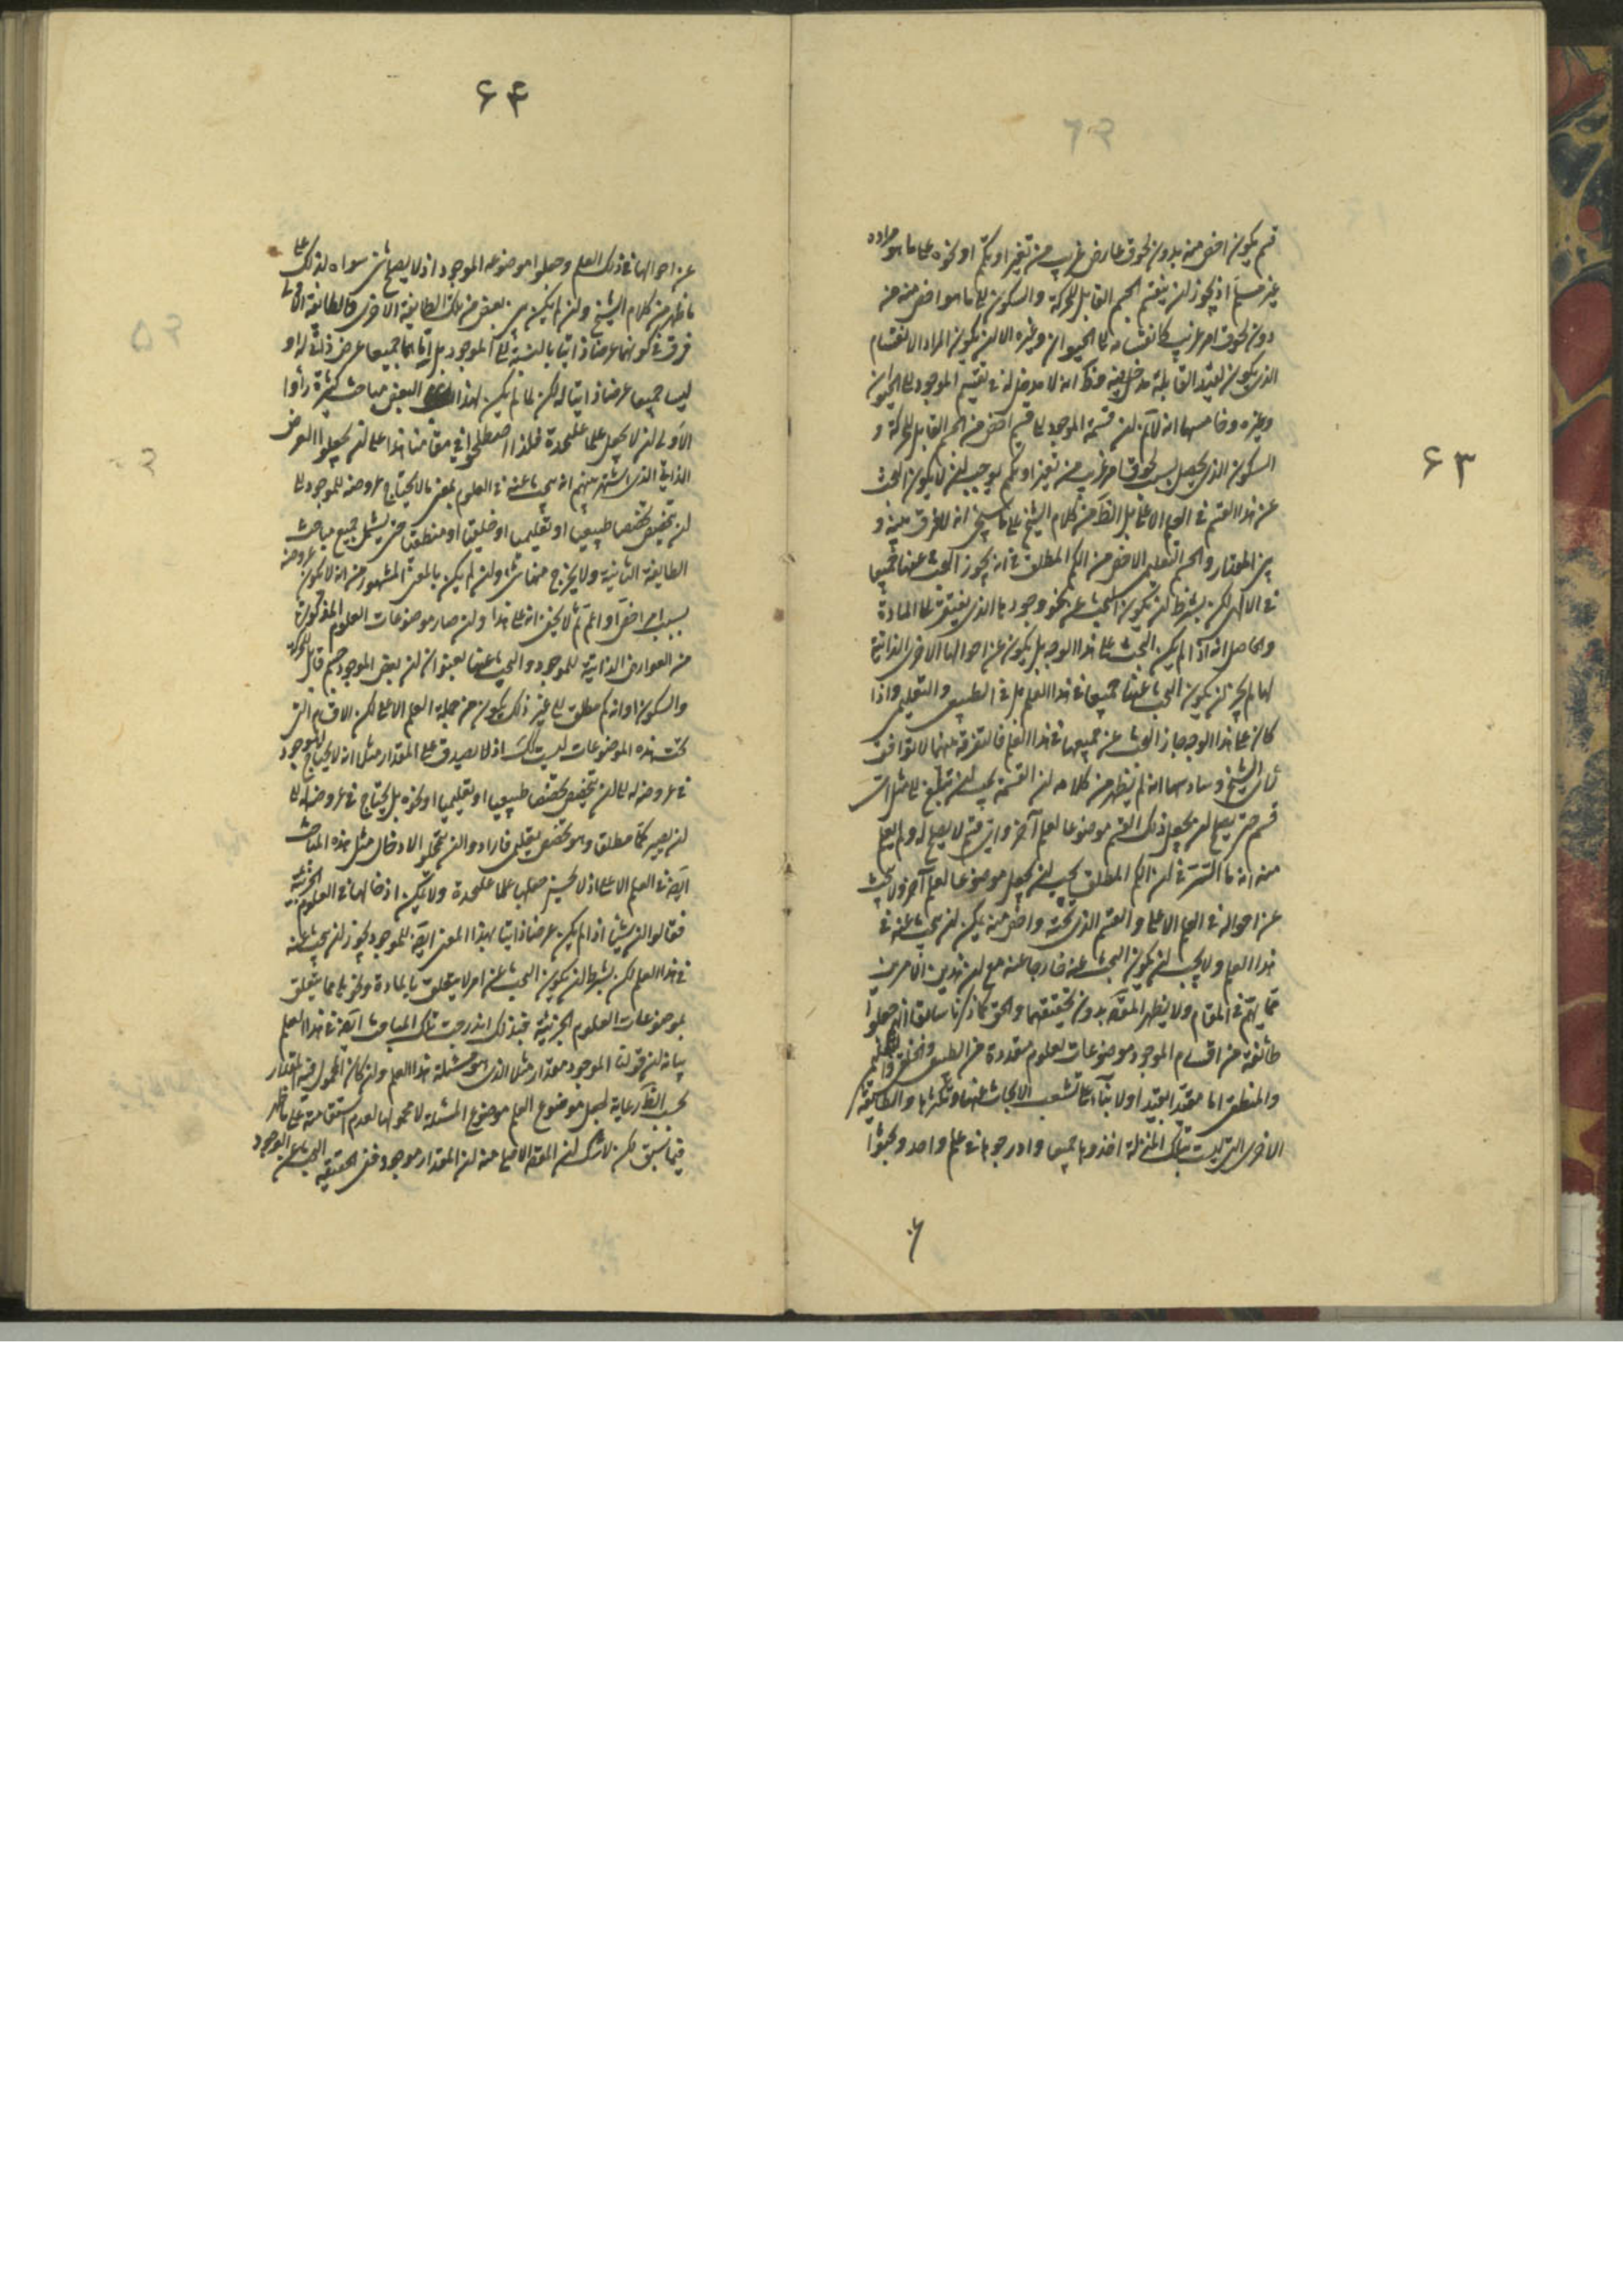 ۶۳
قسم يكون اخص منه بدون لحوق عارض غريب من تغير او تكمم او نحوه على ما هو مراده
غير مسلم اذ يجوز ان ينقسم الجسم القابل للحركة والسكون الى ما هو اخص منه من
دون لحوق امر غريب كانقسامه الى الحيوان وغيره الا ان يكون المراد الانقسام
الذى يكون لقيد القابلية مدخل فيه وظ انه لا مدخل له فى تقسيم الموجود الى الحيوان
وغيره وخامسها انه لا نم ان قسمة الموجود الى قسم اخص من الجسم القابل للحركة و
السكون الذى يحصل بسبب لحوق امر غريب من تغير او تكمم يوجب ان لا يكون البحث
عن هذا القسم فى العلم الاعلى بل الظ من كلام الشيخ على ما سيجئ انه لا فرق بينه و
بين المقدار والجسم التعليمى الاخص من الكم المطلق فى انه يجوز البحث عنها جميعا
فى الالهى لكن بشرط ان يكون البحث عن نحو وجودها الذى يفتقر الى المادة
والحاصل انه اذا لم يكن البحث على هذا الوجه بل يكون عن احوالها الاخرى الذاتية
لها لم يجز ان يكون البحث عنها جميعا فى هذا العلم بل فى الطبيعى والتعليمى واذا
كان على هذا الوجه جاز البحث عن جميعها فى هذا العلم فالتفرقة بينهما لا توافق
رأى الشيخ وسادسها انه لم يظهر من كلامه ان القسمة يجب ان تبلغ الى مثل اى
قسم حتى يصح ان يجعل ذلك القسم موضوعا لعلم آخر واى قسم لا يصح له ولم يعلم
منه انه ما السر فى ان الكم المطلق يجب ان يجعل موضوعا لعلم آخر ولا يبحث
عن احواله فى العلم الاعلى والقسم الذى تحته واخص منه يمكن ان يبحث عنه فى
هذا العلم ولا يجب ان يكون البحث عنه خارجا عنه مع ان هذين الامرين
مما يهم فى المقام ولا يظهر المقصد بدون تحقيقهما والحق كما ذكرنا سابقا انهم جعلوا
طائفة من اقسام الموجود موضوعات لعلوم متعددة من الطبيعى والخلقى والتعليمى
والمنطقى اما مقيدا بقيد او لا بناء على تشعب الابحاث عنها وتكثرها والطائفة
الاخرى التى ليست بتلك المنزلة اخذوها جميعا وادرجوها فى علم واحد وبحثوا
۶۴
عن احوالها فى ذلك العلم وجعلوا موضوعه الموجود اذ لا يصلح شئ سواه لذلك على
ما ظهر من كلام الشيخ وان لم يكن بين بعض من تلك الطايفة الاخرى والطائفة الاولى
فرق فى كونهما عرضا ذاتيا بالنسبة الى الموجود بل اما هما جميعا عرض ذاتى له او
ليسا جميعا عرضا ذاتيا له لكن لما لم يكن لهذا البعض مباحث كثيرة رأوا
الاولى ان لا يجعل علما عليحدة فلذا اصطلحوا فى مقامنا هذا على ان يجعلوا العرض
الذاتى الذى اشتهر بينهم انه يبحث عنه فى العلوم بمعنى ما لا يحتاج عروضه للموجود الى
ان يتخصص تخصصا طبيعيا او تعليميا او خلقيا او منطقيا حتى يشمل جميع مباحث
الطايفة الثانية ولا يخرج منها شئ وان لم يكن بالمعنى المشهور من انه لا يكون عروضه
بسبب امر اخص او اعم ثم لا يخفى انه على هذا وان صار موضوعات العلوم المذكورة
من العوارض الذاتية للموجود والبحث عنها بعنوان ان بعض الموجود جسم قابل للحركة
والسكون او انه كم مطلق الى غير ذلك يكون من جملة العلم الاعلى لكن الاقسام التى
تحت هذه الموضوعات ليست كك اذ لا يصدق على المقدار مثلا انه لا يحتاج الموجود
فى عروضه له الى ان يتخصص تخصصا طبيعيا او تعليميا او نحوه بل يحتاج فى عروضه له الى
ان يصير كما مطلقا وهو تخصص تعليمى فارادوا ان يتمحلوا لادخال مثل هذه المباحث
ايضا فى العلم الاعلى اذ لا يحسن جعلها علما عليحدة ولا يمكن ادخالها فى العلوم الجزئية
فقالوا ان شيئا اذا لم يكن عرضا ذاتيا بهذا المعنى ايضا للموجود يجوز ان يبحث عنه
فى هذا العلم لكن بشرط ان يكون البحث عن امر لا يتعلق بالمادة ونحوها مما يتعلق
بموضوعات العلوم الجزئية فبذلك اندرجت تلك المباحث ايضا فى هذا العلم
بيانه ان قولنا الموجود مقدار مثلا الذى هو مسئلة هذا العلم وان كان المحمول فيه المقدار
بحسب الظ رعاية لجعل موضوع العلم موضوع المسئلة لا محمولها لعدم استقامته على ما ظهر
فيما سبق لكن لا شك ان المقصد الاصلى منه ان المقدار موجود ففى الحقيقة البحث عن الوجود